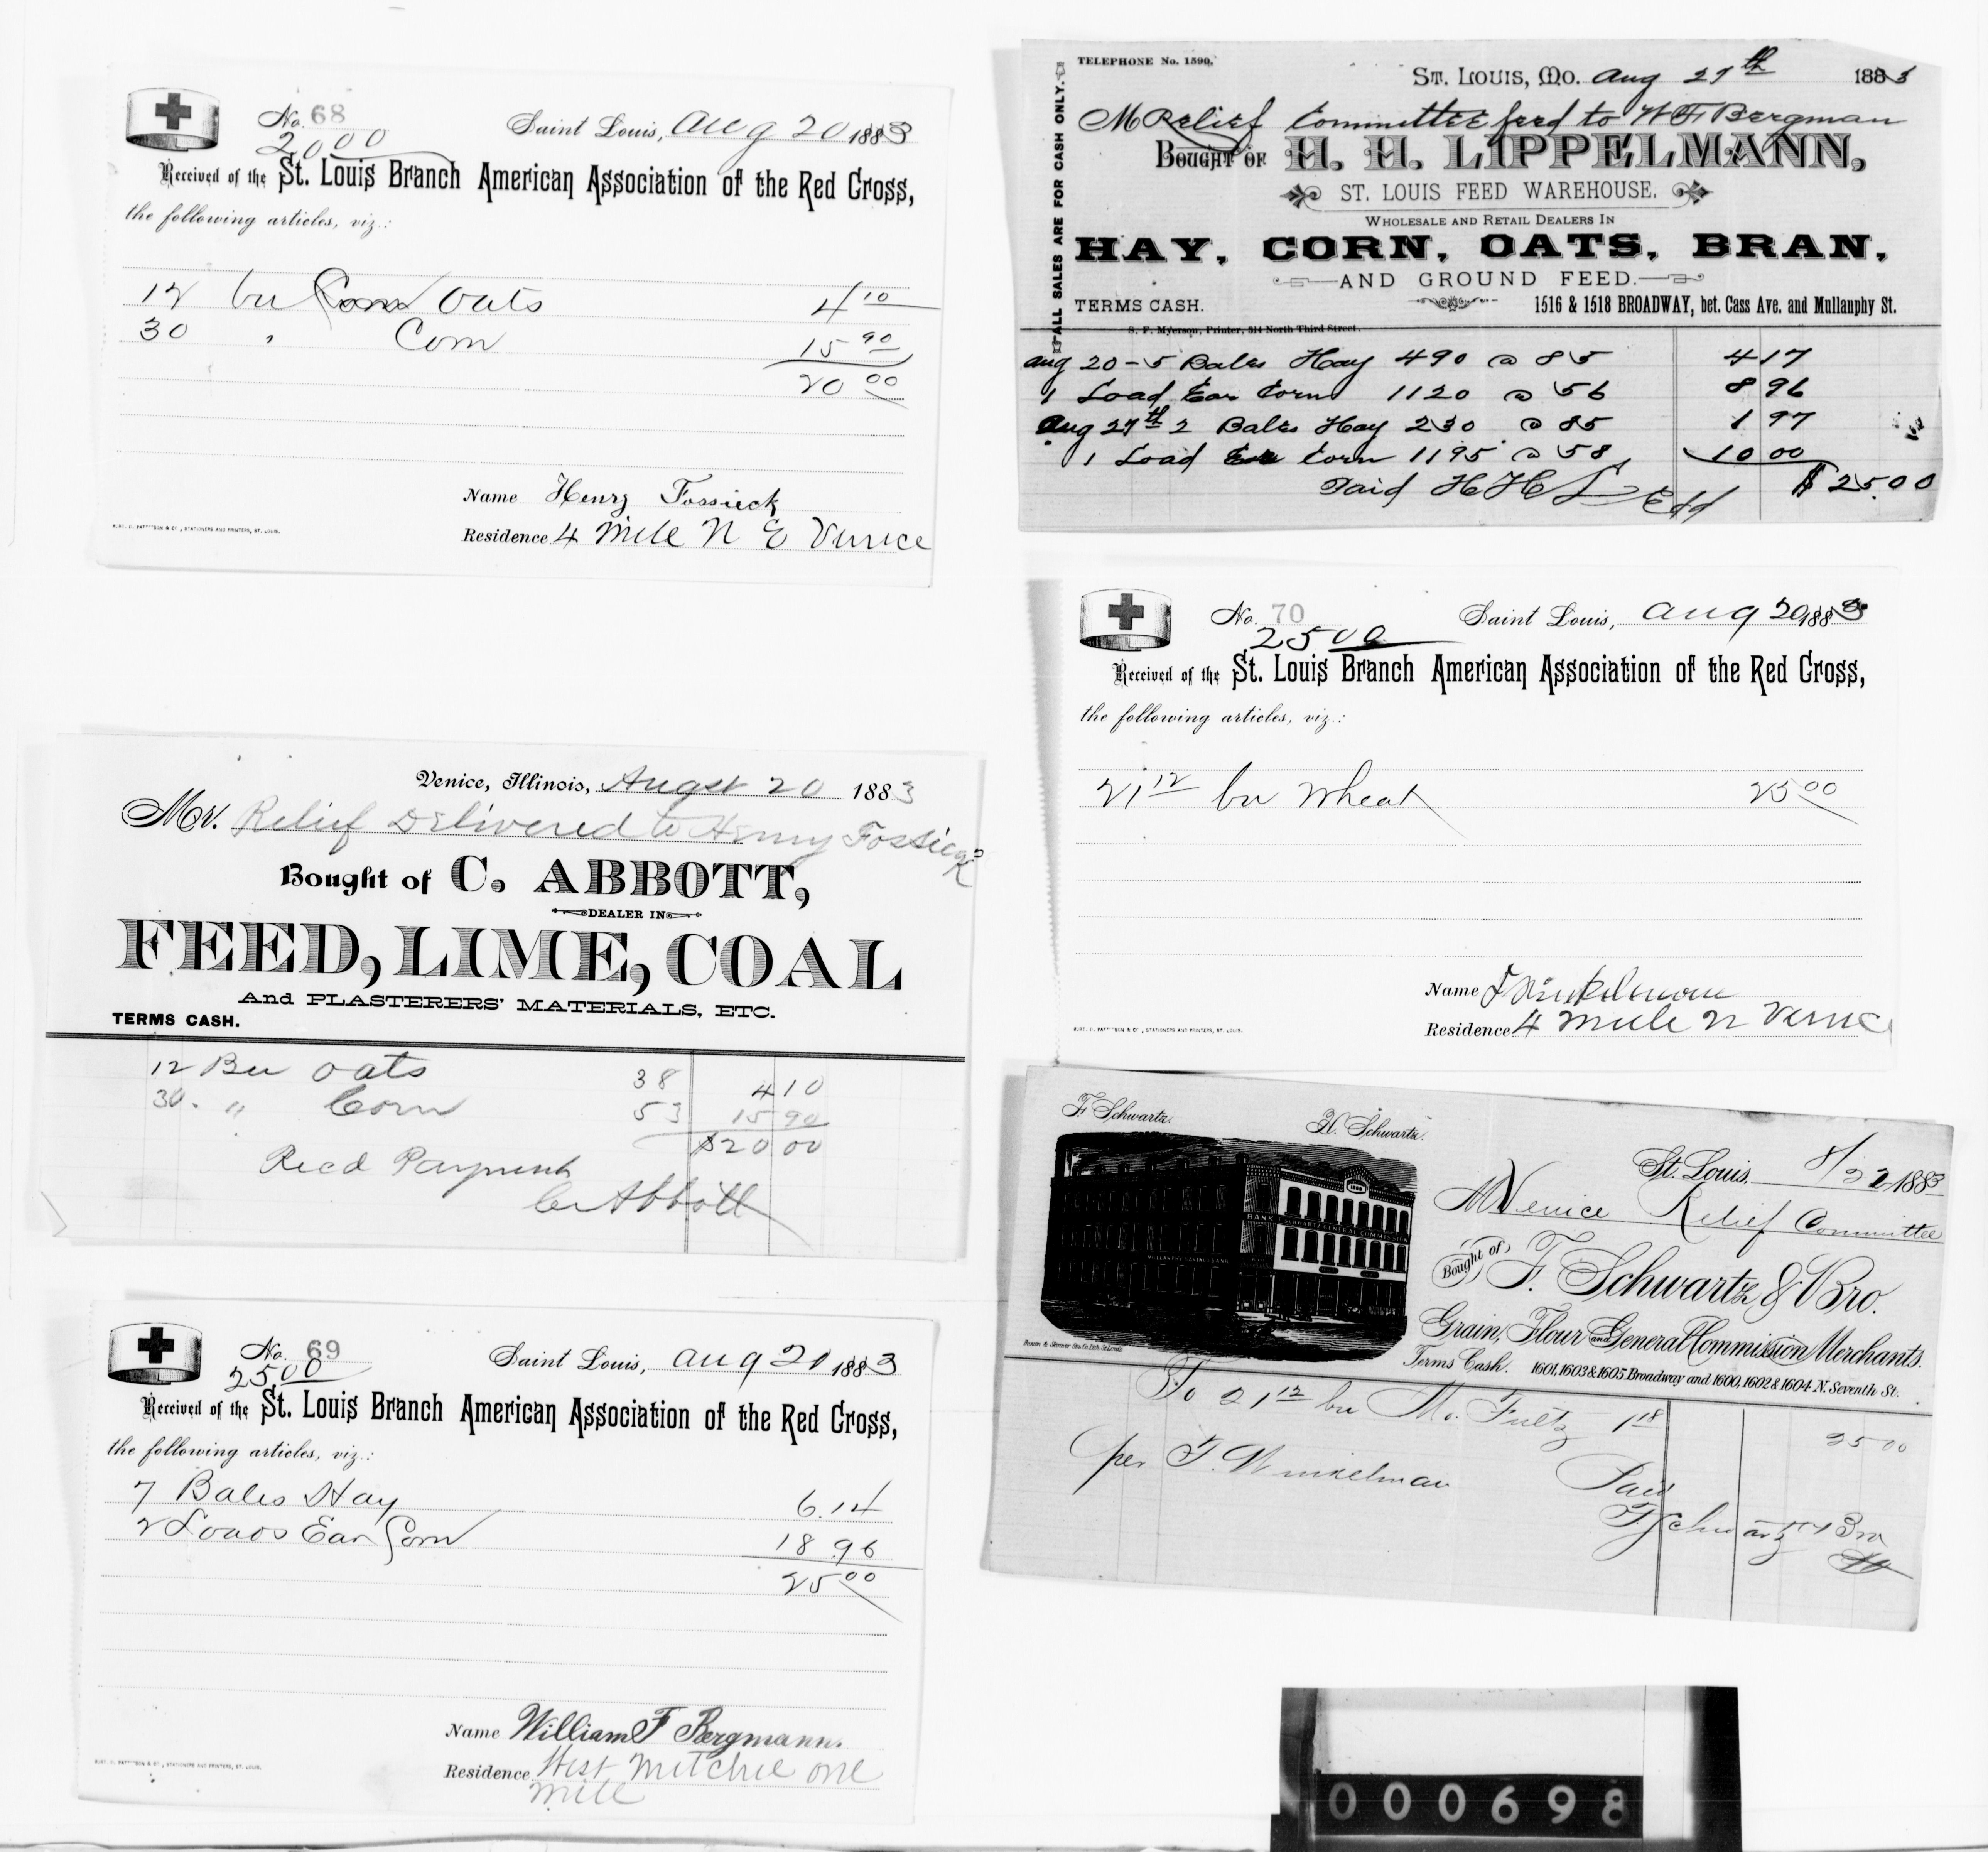 No. 68
20 00
Saint Louis, Aug 20 1883
Received of the St. Louis Branch American Association of the Red Cross,
the following articles, viz.:
12 bu Corn Oats 4 10
30 " Corn 15 90
20 00
Name Henry Fossieck
Residence 4 Mile N E Venice
Venice, Illinois, Augst 20 1883
Mr. Relief Delivered to Henry Fossieck
Bought of C. ABBOTT,
DEALER IN
FEED, LIME, COAL
And PLASTERERS' MATERIALS, ETC.
TERMS CASH.
12 Bu Oats 38 4 10
30 " Corn 53 15 90
$20 00
Recd Payment
C Abbott
No. 69
25.00
Saint Louis, Aug 20 1883
Received of the St. Louis Branch American Association of the Red Cross,
the following articles, viz.:
7 Bales Hay 6.14
2 Loads Ear Corn 18 96
25 00
Name William F Bergmann.
Residence West Mitchie one
mile
TELEPHONE No. 1590.
ALL SALES ARE FOR CASH ONLY.
ST. LOUIS, MO. Aug 27th 1883
M Relief Committee feed to W F Bergman
BOUGHT OF H. H. LIPPELMANN,
ST. LOUIS FEED WAREHOUSE.
WHOLESALE AND RETAIL DEALERS IN
HAY, CORN, OATS, BRAN,
AND GROUND FEED.
TERMS CASH. 1516 & 1518 BROADWAY, bet. Cass Ave. and Mullanphy St.
S. F. Myerson, Printer, 314 North Third Street.
Aug 20 - 5 Bales Hay 490 @ 85 4 17
1 Load Ear Corn 1120 @ 56 8 96
Aug 27th 2 Bales Hay 230 @ 85 1 97
1 Load Ear Corn 1195 @ 58 10 00
Paid H H L $25.00
No. 70
25 00
Saint Louis, Aug 20 1883
Received of the St. Louis Branch American Association of the Red Cross,
the following articles, viz.:
21 12 bu Wheat 25 00
Name F Winkelman
Residence 4 Mile N Venice
F. Schwartz. H. Schwartz.
St. Louis, 8/22 1883
M Venice Relief Committee
Bought of F. Schwartz & Bro.
Grain, Flour and General Commission Merchants.
Terms Cash. 1601, 1603 & 1605 Broadway and 1600, 1602 & 1604 N. Seventh St.
To 21 12 bu Mo. Fultz 1 18 25 00
per F. Winkelman
Paid
F Schwartz & Bro
000698